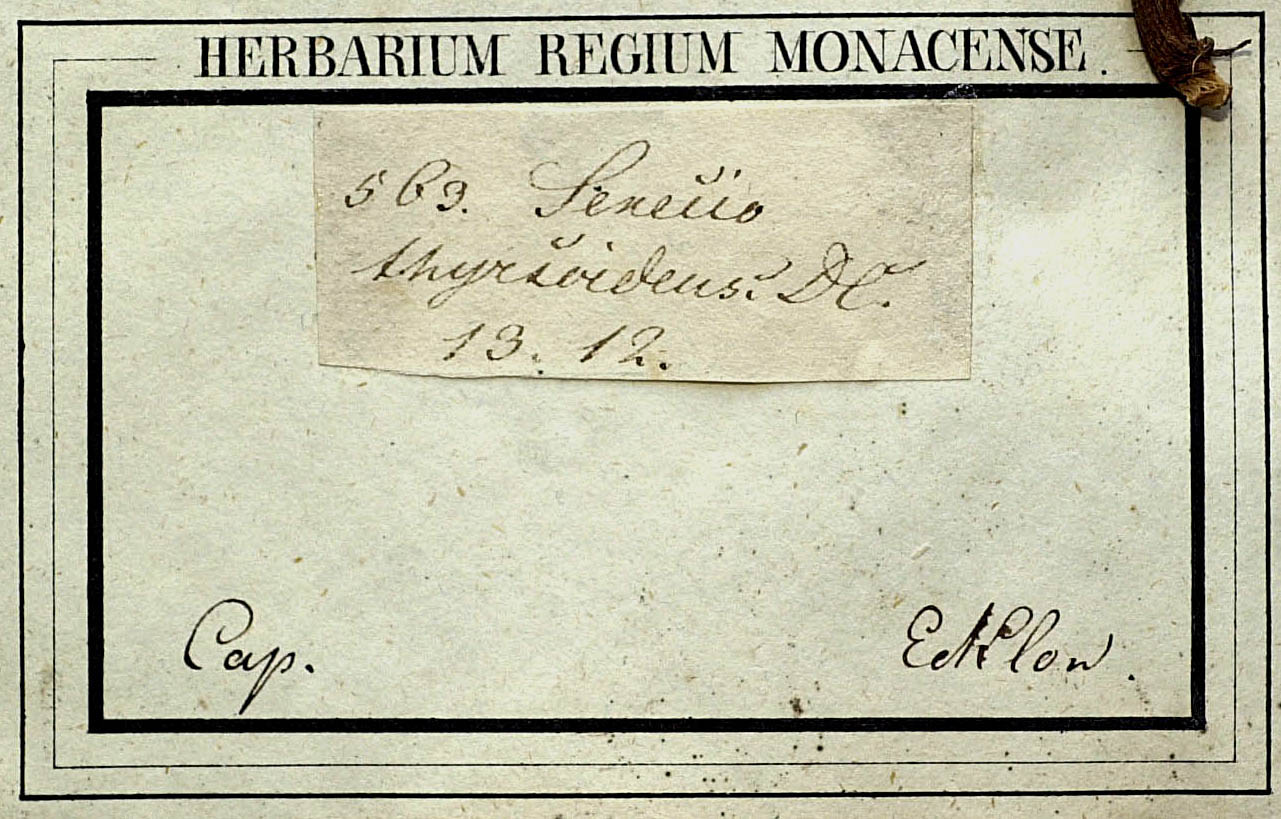 HERBARIUM REGIUM MONACENSE.
563. Senecio
thyrsoideus. DC.
13. 12.
Cap.
Ecklon.